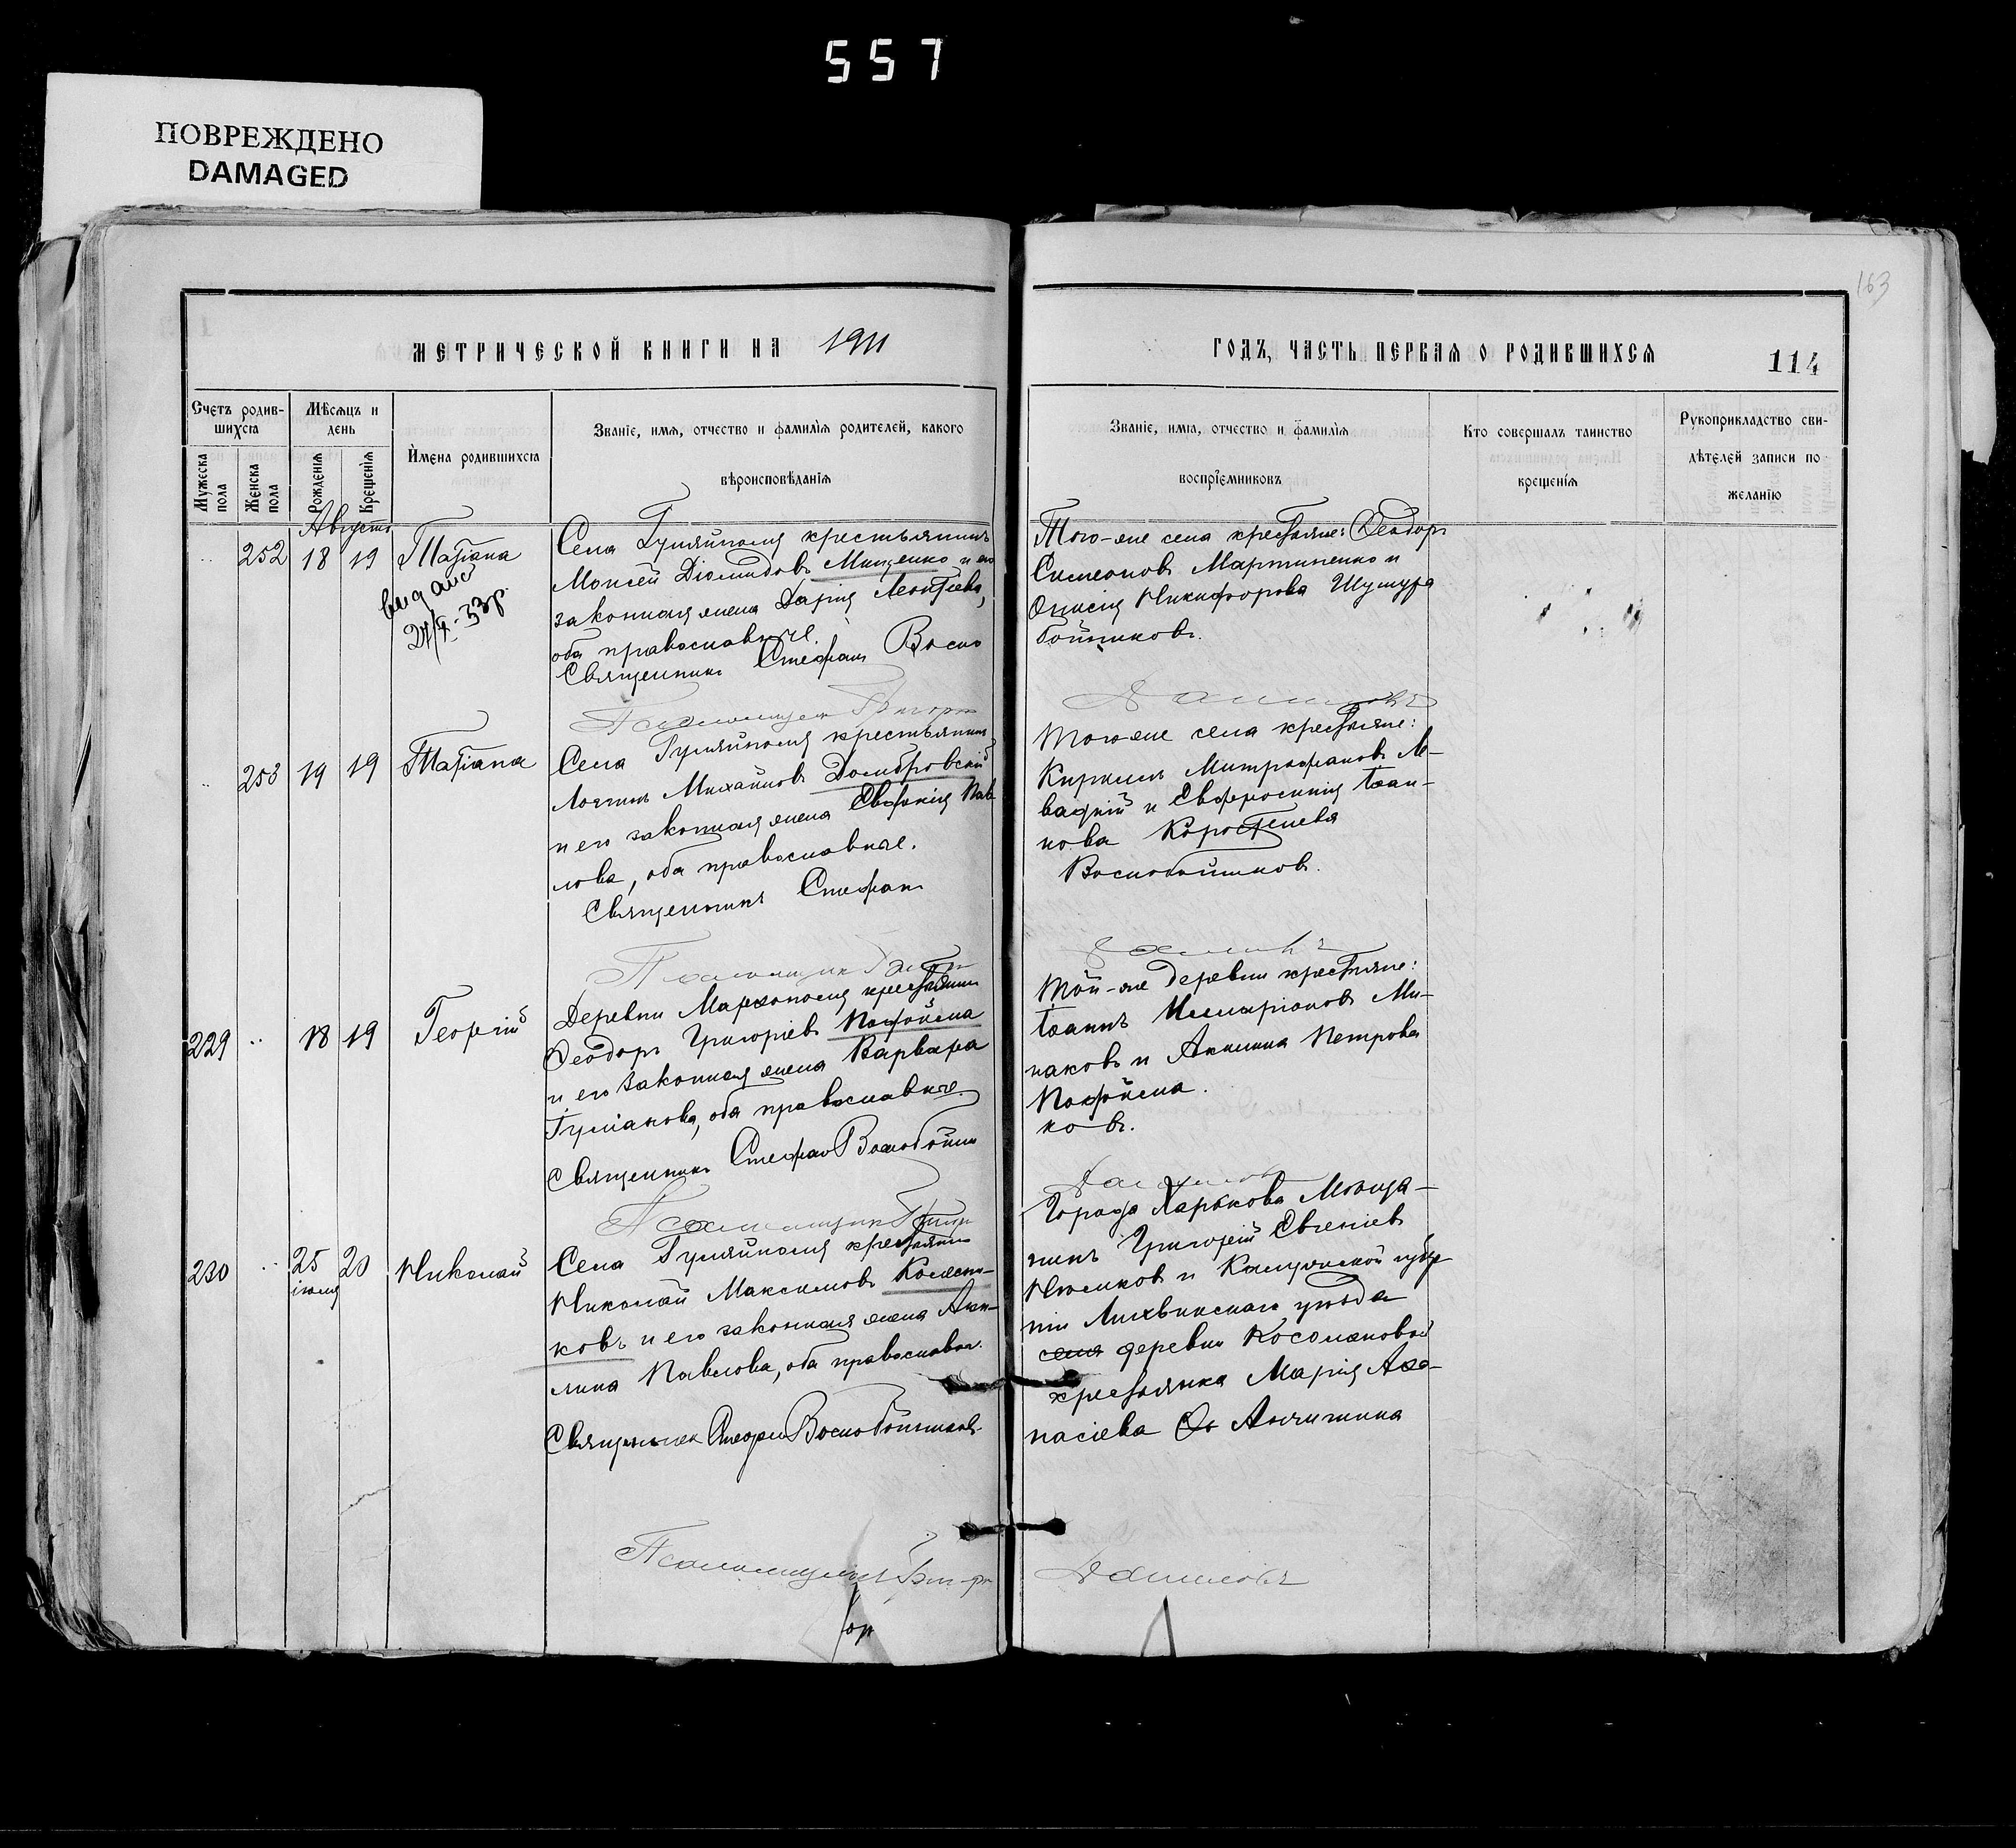 557
ПОВРЕЖДЕНО
DAMAGED
163
МЕТРИЧЕСКОЙ КНИГИ НА 1911
ГОДЪ, ЧАСТЬ ПЕРВАЯ О РОДИВШИХСЯ
114
Счетъ родив-
шихся
Мѣсяцъ и
день
Мужеска
пола
Женска
пола
Рожденія
Крещенія
Имена родившихся
Званіе, имя, отчество и фамилія родителей, какого
вѣроисповѣданія
Званіе, имя, отчество и фамилія
воспріемниковъ
Кто совершалъ таинство
крещенія
Рукоприкладство сви-
дѣтелей записи по
желанію
Августъ
252 18 19 Татіана
24/ - 33р.
Села Гуляйполя крестьянинъ
Моисей Діомидовъ Мищенко и его
законная жена Дарія Леонтіева,
оба православные.
Священникъ Стефанъ Воско
Псаломщикъ Григорій
Того-же села крестьяне: Ѳеодоръ
Симеоновъ Мартиненко и
Никифорова Шушура
бойниковъ.
Даниловъ
253 19 19 Татіана
Села Гуляйполя крестьянинъ
Логгинъ Михайловъ Домбровскій
и его законная жена Евфимія Пав-
лова, оба православные.
Священникъ Стефанъ
Псаломщикъ
Того же села крестьяне:
Кириллъ Митрофановъ Ле-
вадній и Евфросинія Іоан-
нова Коростелева
Воскобойниковъ.
Даниловъ
229 18 19 Георгій
Деревни Марфополя крестьянинъ
Ѳеодоръ Григоріевъ
и его законная жена Варвара
Гуліанова, оба православные.
Священникъ Стефанъ Воскобойни
Псаломщикъ Григор
Той-же деревни крестьяне:
Іоаннъ Илларіоновъ Ми-
наковъ и Акилина Петрова
ковъ.
Даниловъ
230 25 20 Николай
іюля
Села Гуляйполя крестьянинъ
Николай Максимовъ Колест-
ковъ и его законная жена Аки-
лина Павлова, оба православн.
Священникъ Стефанъ Воскобойниковъ
Псаломщикъ Григорій
Города Харькова Мѣща-
нинъ Григорій Евгеніев
и Калужской губер
ніи Лихвинскаго уѣзда
села деревни Космановой
крестьянка Марія Аѳа-
насіева Анчишкина
Даниловъ